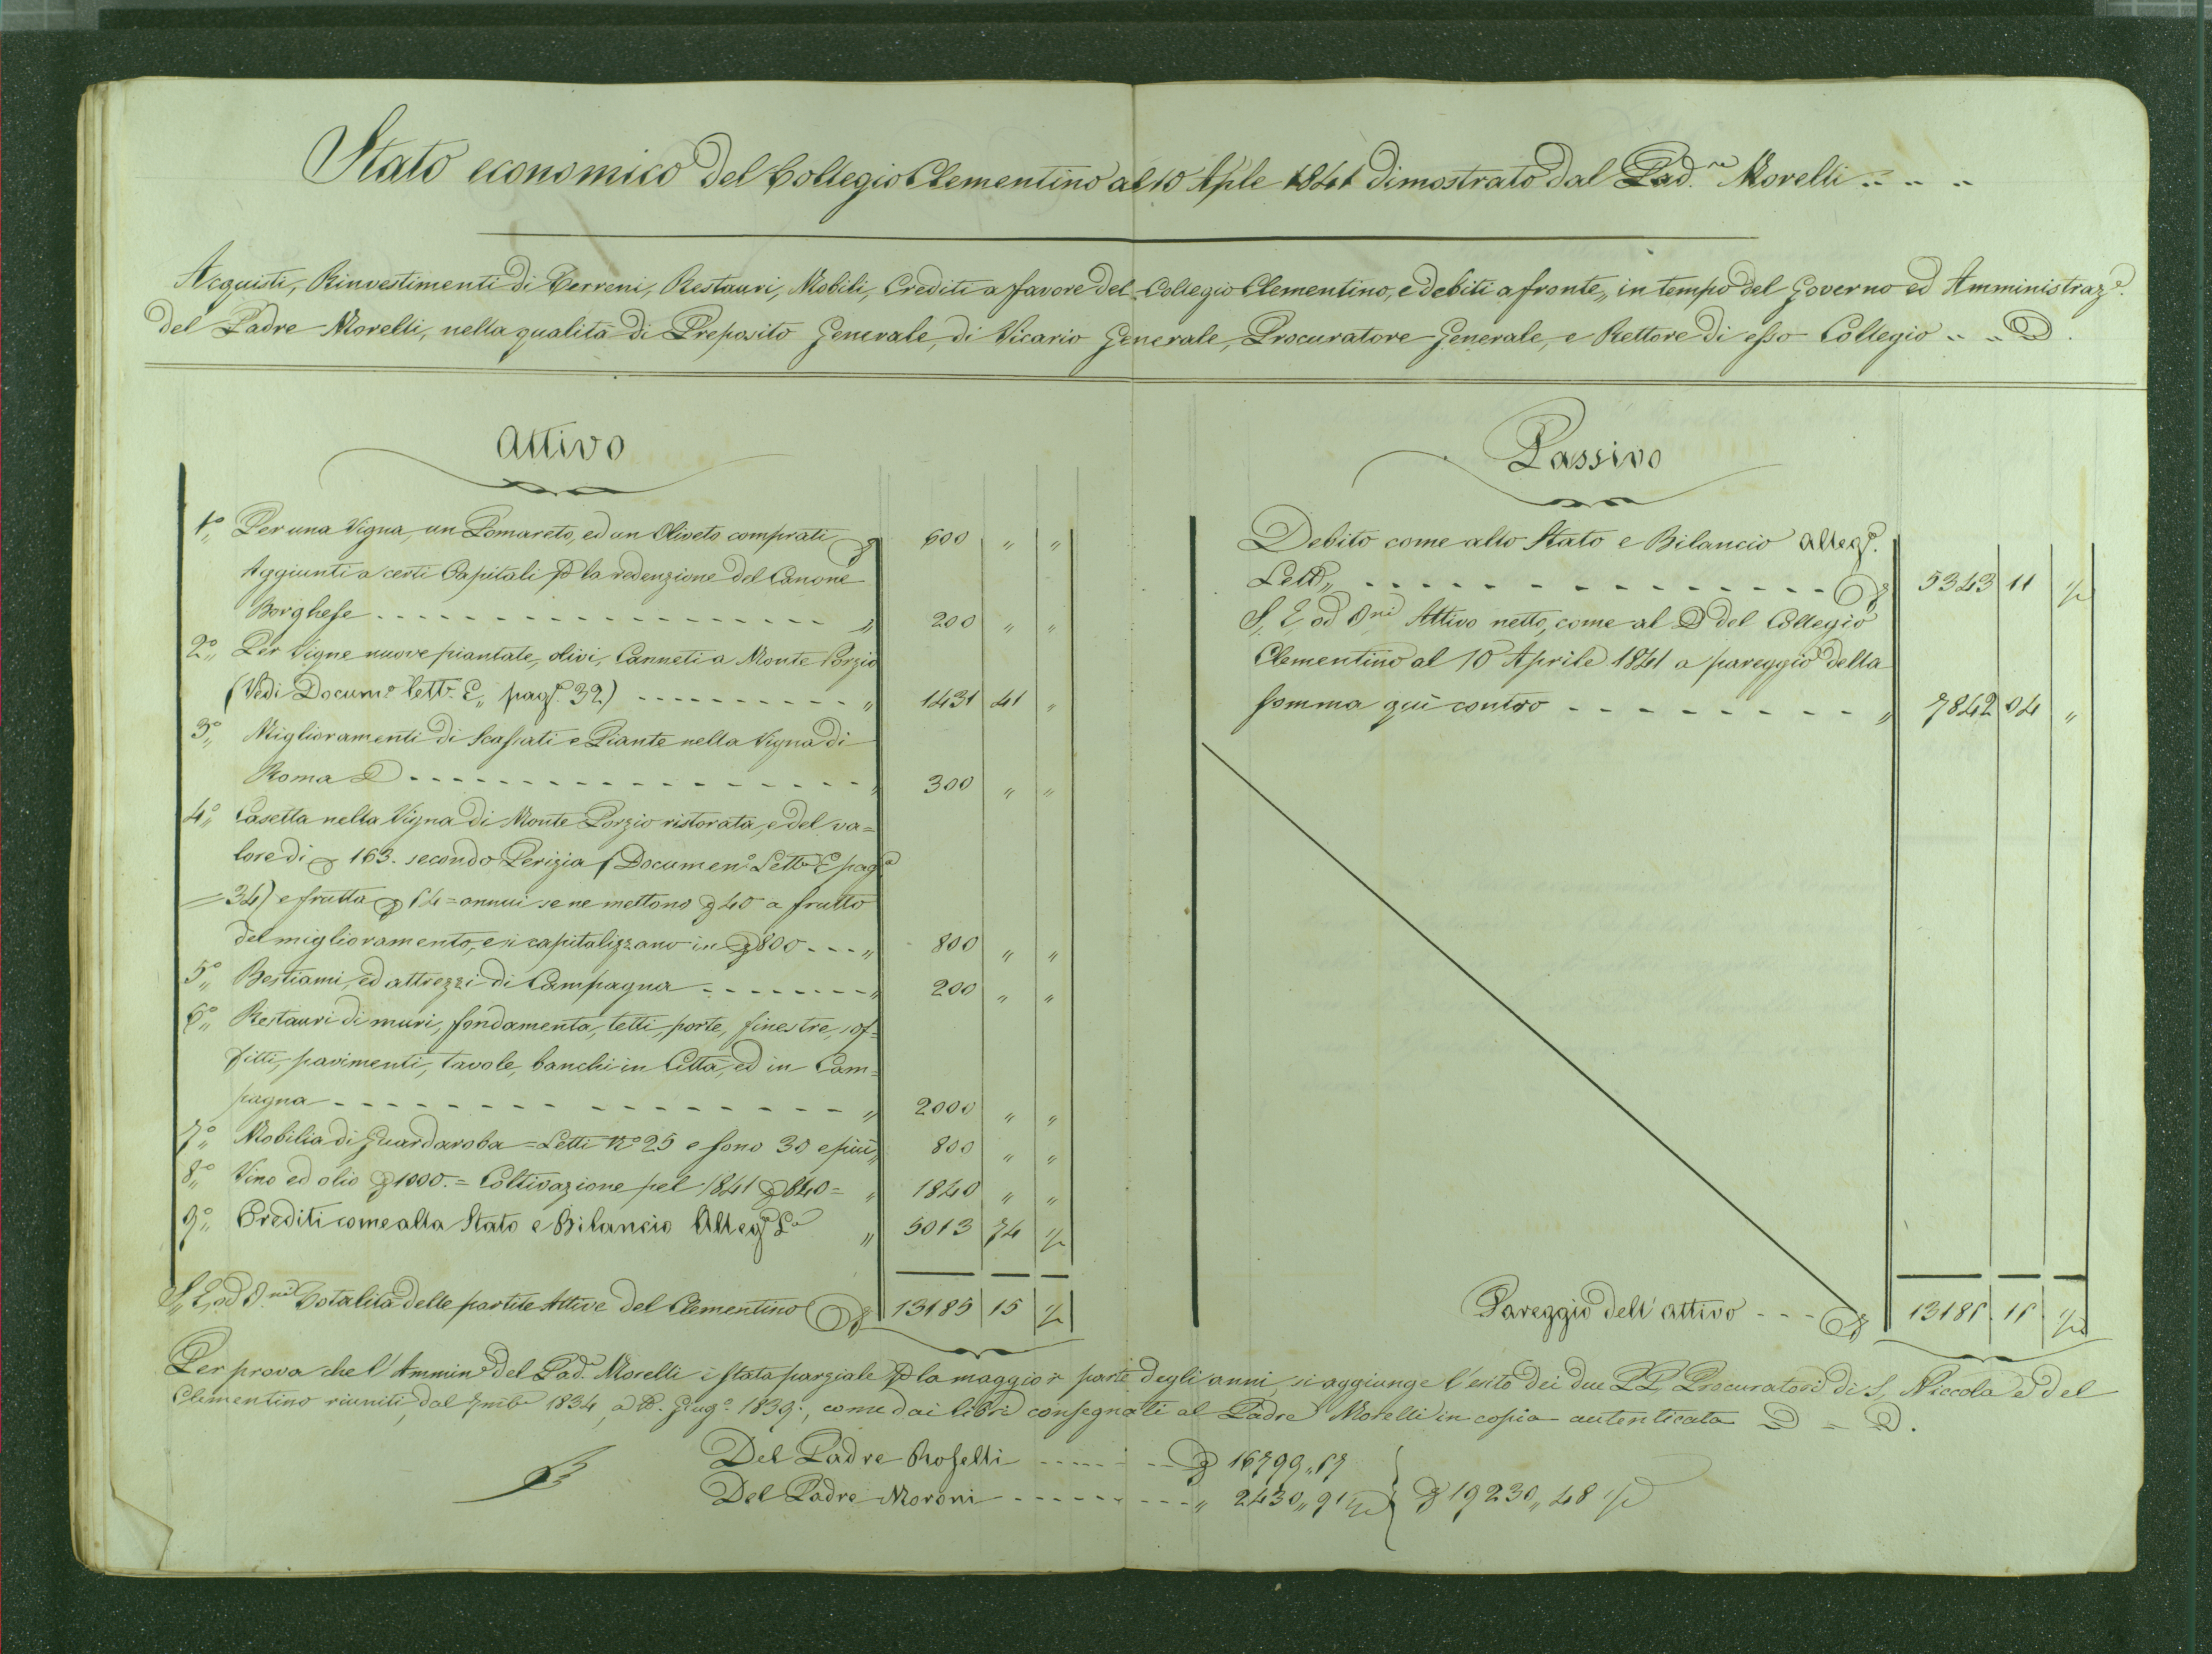 Stato economico del Collegio Clementino al 10 Aple 1841 dimostrato dal Pad.re Morelli
Acquisti, Rinvestimenti di Terreni, Restauri, Mobili, Crediti a favore del Collegio Clementino, e debiti a fronte,, in tempo del Governo ed Amministraze.
del Padre Morelli, nella qualità di Preposito Generale, di Vicario Generale, Procuratore Generale, e Rettore di esso Collegio
Attivo
1°,, Per una Vigna, un Pomareto, ed un Oliveto comprati 600 " "
Aggiunti a certi Capitali la redenzione del Canone
Borghese - - - - " 200 " "
2°,, Per Vigne nuove piantate, olivi, Canneti a Monte Porzio
(Vedi Docum.o Lett. E,, pag. 32) - - - - " 1431 41 "
3°,, Miglioramenti di Scassati e Piante nella Vigna di
Roma - - - - " 300 " "
4°,, Casetta nella Vigna di Monte Porzio ristorata, e del va=
lore di 163. secondo Perizia (Documen.o Lett. E pag.
= 34) e frutta annui se ne mettono 40 a frutto
del miglioramento, e si capitalizzano in 800 - - - " 800 " "
5°,, Bestiami, ed attrezzi di Campagna - - - - " 200 " "
6°,, Restauri di muri, fondamenta, tetti, porte, finestre, sof=
fitti, pavimenti, tavole, banchi in Città, ed in Cam=
pagna - - - - " 2000 " "
7°,, Mobilia di Guardaroba = Letti N° 25 e sono 30 e più " 800 " "
8°,, Vino ed olio 1000. = Coltivazione pel 1841 840 = " 1840 " "
9°,, Crediti come alla Stato e Bilancio Alleg. L.a " 5013 74 ½
S,, E, od O.ni Totalità delle partite Attive del Clementino 13185 15 ½
Passivo
Debito come allo Stato e Bilancio alleg.
Lett.,, - - - - 5343 11 ½
S. E. od O.ni Attivo netto, come al del Collegio
Clementino al 10 Aprile 1841 a pareggio della
somma qui contro - - - - " 7842 04 "
Pareggio dell'attivo - - - 13185. 15. ½
Per prova che l'Ammin.e del Pad. Morelli è stata parziale la maggior parte degli anni, si aggiunge l'esito dei due PP. Procuratori di S. Niccola e del
Clementino riuniti, dal 7mbe 1834, a Giug.o 1839., come dai libri consegnati al Padre Morelli in copia autenticata
Del Padre Roselli - - - - 16799,,57
Del Padre Moroni - - - - " 2430,, 91 ½ } 19230,, 48 ½